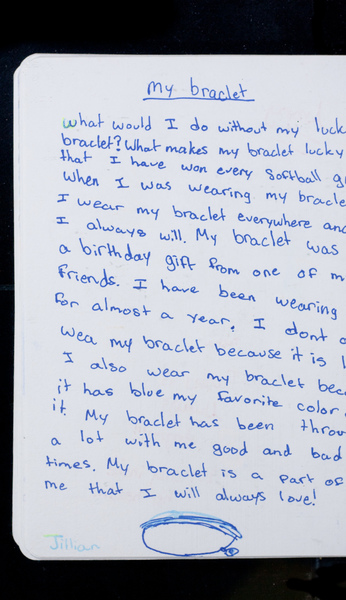 my braclet
what would I do without my luck
braclet? What makes my braclet lucky
that I have won every Softball g
When I was wearing my bracle
I wear my braclet everywhere and
I always will. My braclet was
a birthday gift from one of m
friends. I have been wearing
for almost a year. I dont o
wea my braclet because it is l
I also wear my braclet bec
it has blue my favorite color
it. My braclet has been throu
a lot with me good and bad
times. My braclet is a part of
me that I will always love!
Jillian